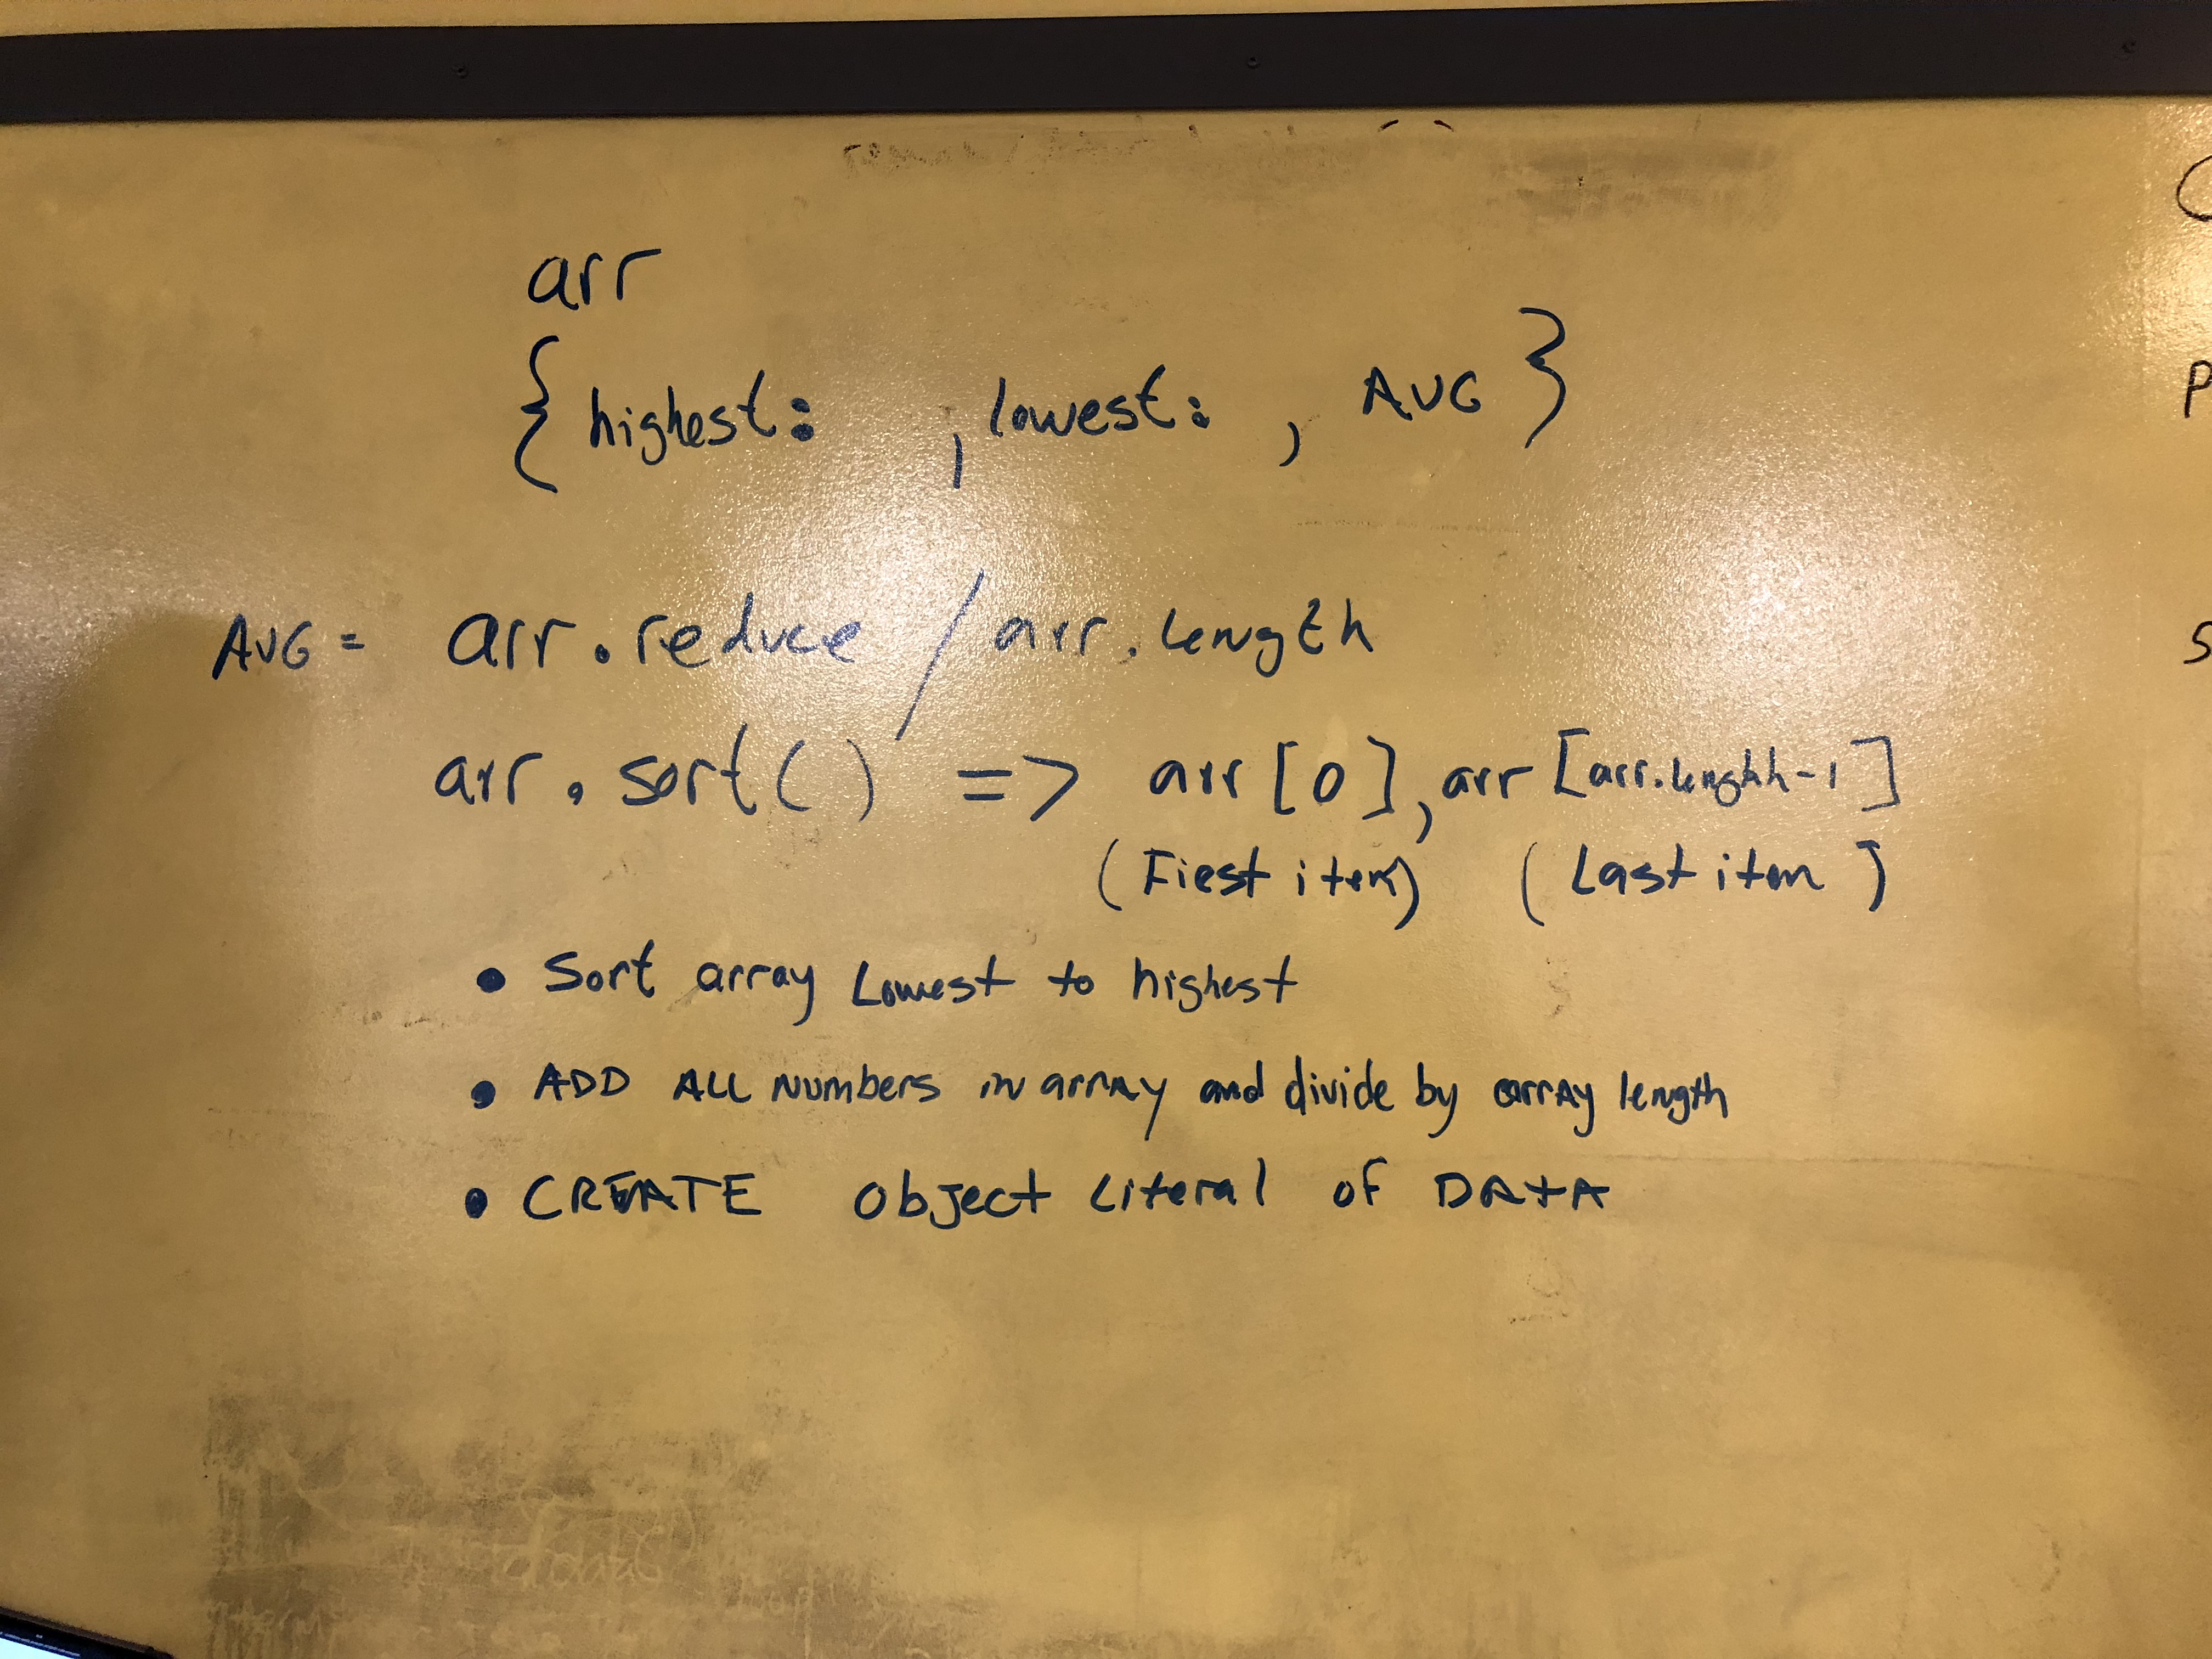 arr
{ highest: , lowest: , AVG }
AVG = arr.reduce / arr.length
arr.sort() => arr[0], arr[arr.lenghh-1]
(Fiest item) (Last item]
• Sort array Lowest to highest
• ADD ALL Numbers in array and divide by array length
• CREATE Object Literal of DATA